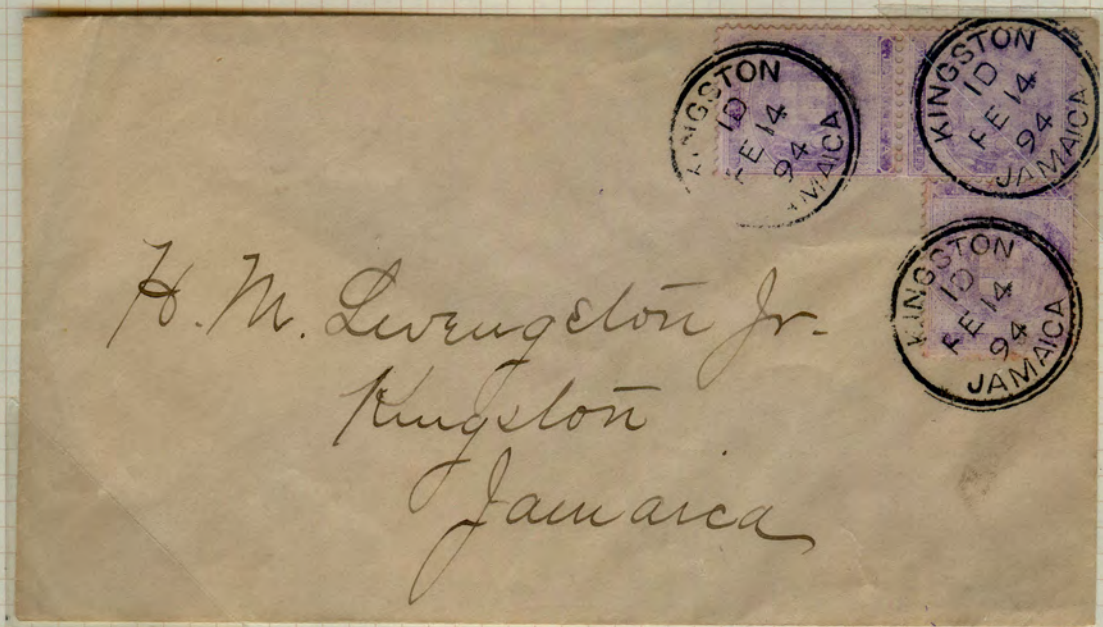 KINGSTON
1D
FE 14
94
JAMAICA
KINGSTON
1D
FE 14
94
JAMAICA
KINGSTON
1D
FE 14
94
JAMAICA
H. M. Livingston Jr.
Kingston
Jamaica